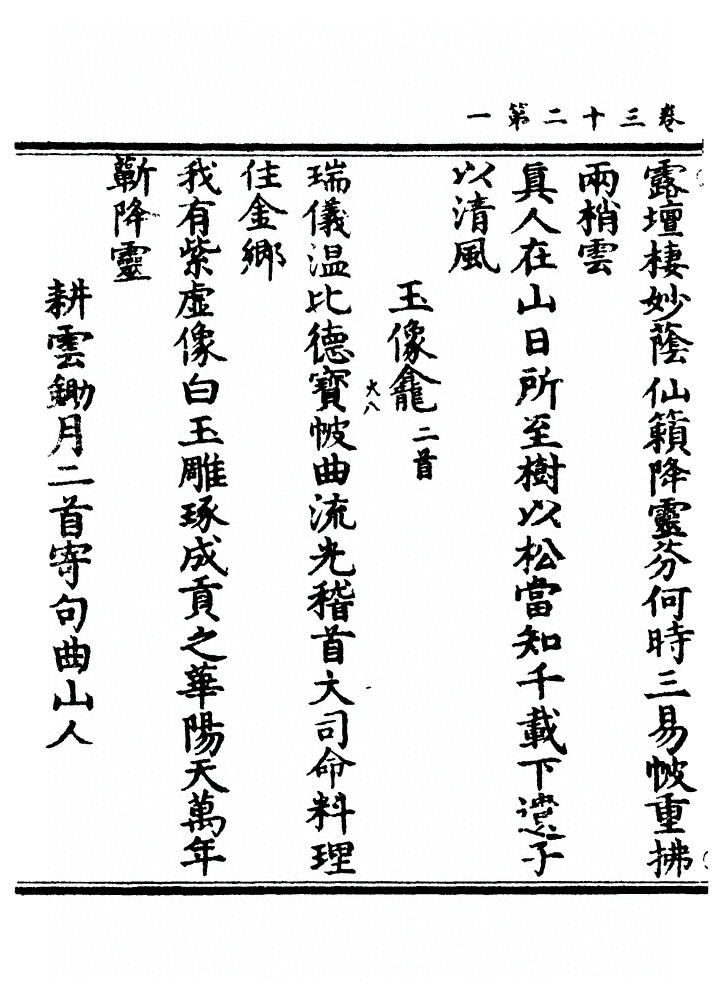 卷三十二第一
露壇棲妙蔭仙籟降靈芬何時三易帔重拂
兩梢雲
真人在山日所至樹以松當知千載下還子
以清風
玉像龕二首
大八
瑞儀温比德寶帔曲流光稽首大司命料理
住金鄉
我有紫虛像白玉雕琢成貢之華陽天萬年
蘄降靈
耕雲鋤月二首寄句曲山人